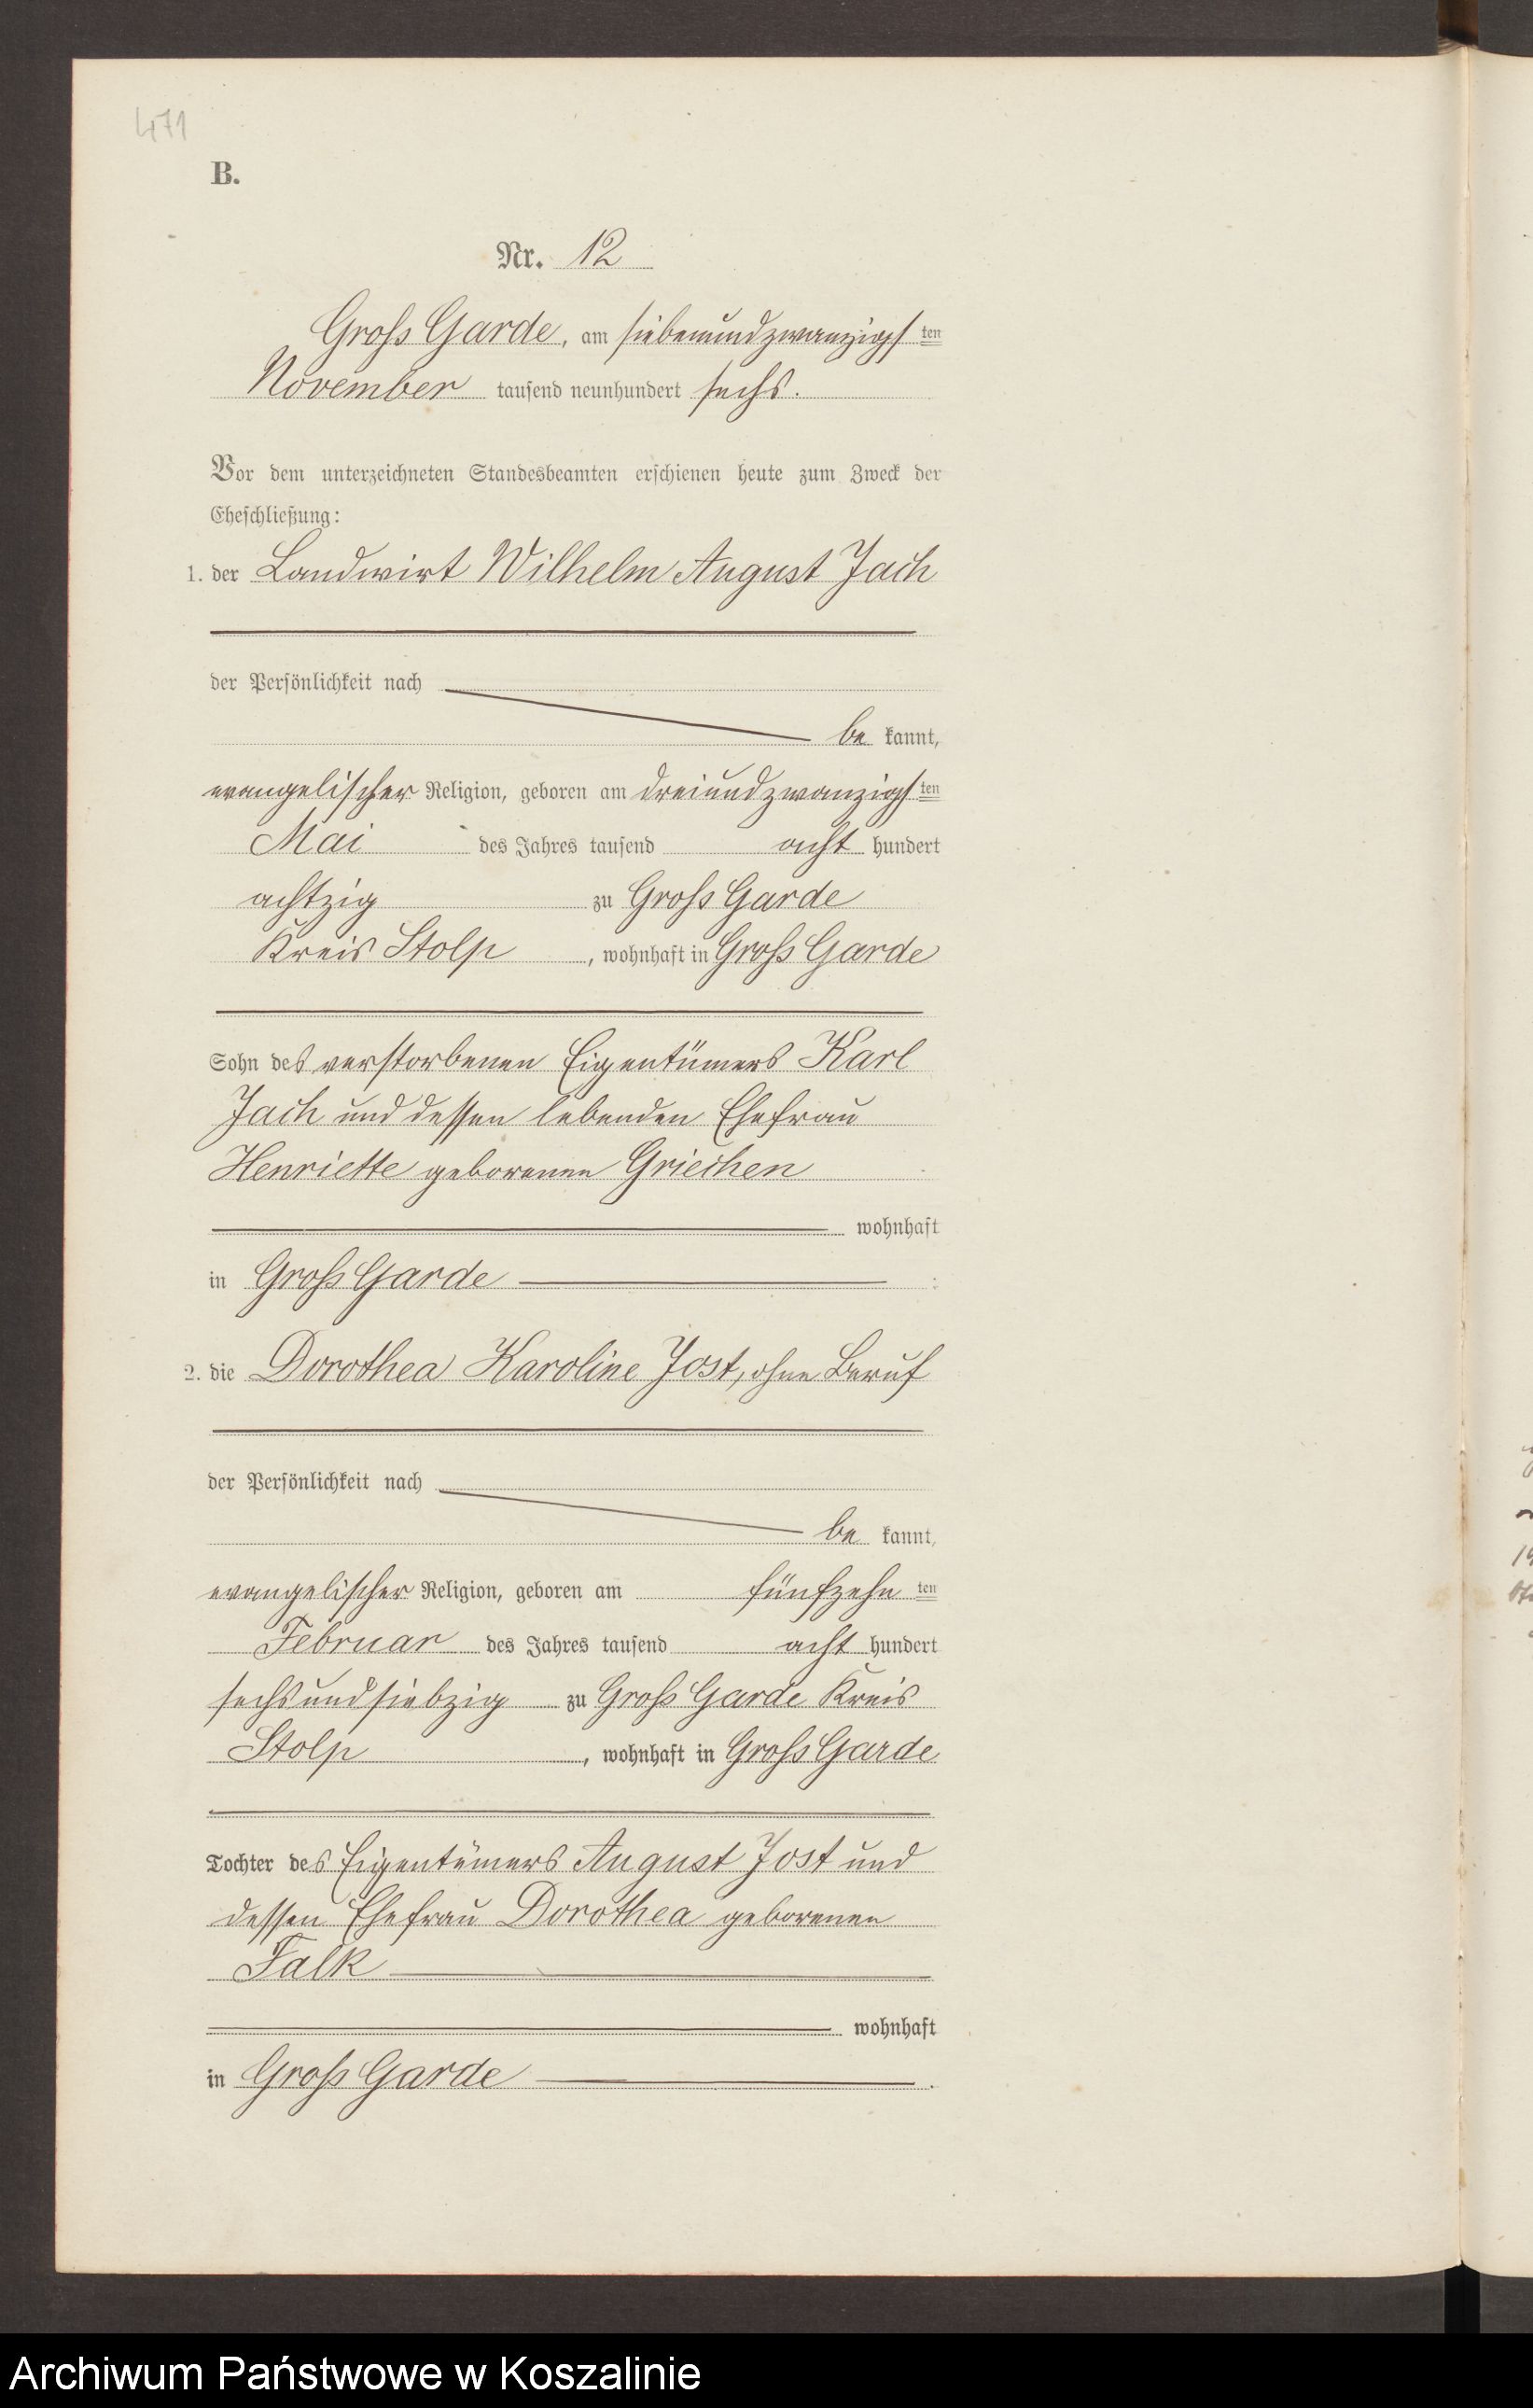 471
B.
Nr. 12
Gross Garde, am siebenundzwanzigsten
November tausend neunhundert sechs.
Vor dem unterzeichneten Standesbeamten erschienen heute zum Zweck der
Eheschließung:
1. der Landwirt Wilhelm August Jach
der Persönlichkeit nach
be kannt,
evangelischer Religion, geboren am dreiundzwanzigsten
Mai des Jahres tausend acht hundert
achtzig zu Gross Garde
Kreis Stolp, wohnhaft in Gross Garde
Sohn des verstorbenen Eigentümers Karl
Jach und dessen lebenden Ehefrau
Henriette geborenen Griechen
wohnhaft
in Gross Garde :
2. die Dorothea Karoline Jost, ohne Beruf
der Persönlichkeit nach
be kannt,
evangelischer Religion, geboren am fünfzehn ten
Februar des Jahres tausend acht hundert
sechsundsiebzig zu Gross Garde Kreis
Stolp, wohnhaft in Gross Garde
Tochter des Eigentümers August Jost und
dessen Ehefrau Dorothea geborenen
Falk
wohnhaft
in Gross Garde.
Archiwum Państwowe w Koszalinie